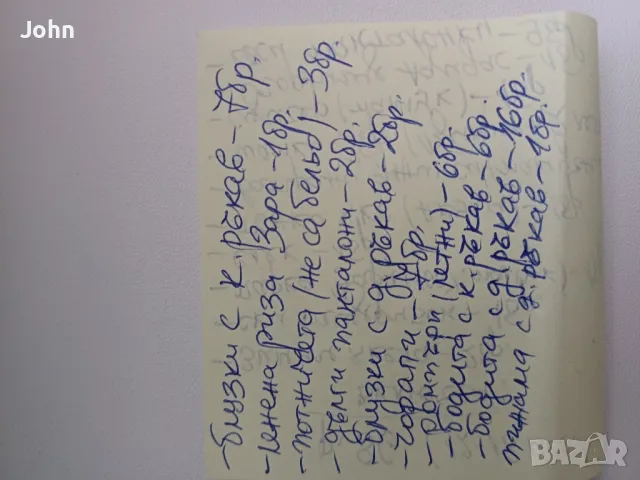 John
-блузки с к. ръкав – 7бр.
-ленена риза Зара -1бр.
-потничета (не са бельо) -3бр.
-дълги панталони-2бр.
-блузки с д. ръкав -2бр.
-чорапи -7бр.
-ромпъри (летни) -6бр
-бодита с к. ръкав -6бр.
-бодита с д. ръкав -16бр.
пижама с д. ръкав -1бр.
BAZAR
bg